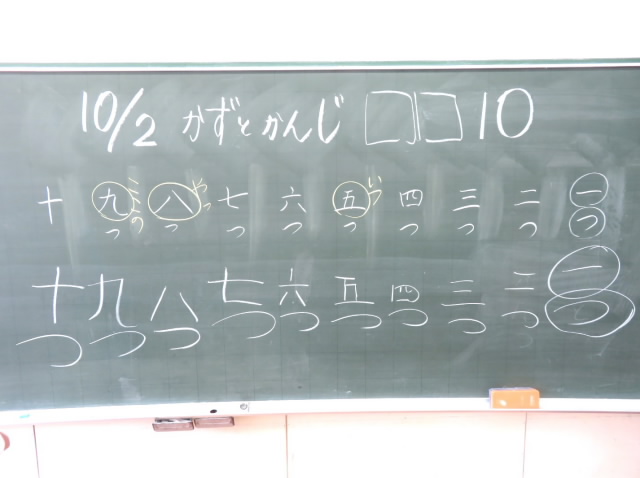 10/2 かずとかんじ □□10
一つ
二つ
三つ
四つ
五つ
いつ
六つ
七つ
八つ
やっ
九つ
ここの
十
一つ
二つ
三つ
四つ
五つ
六つ
七つ
八つ
九つ
十つ